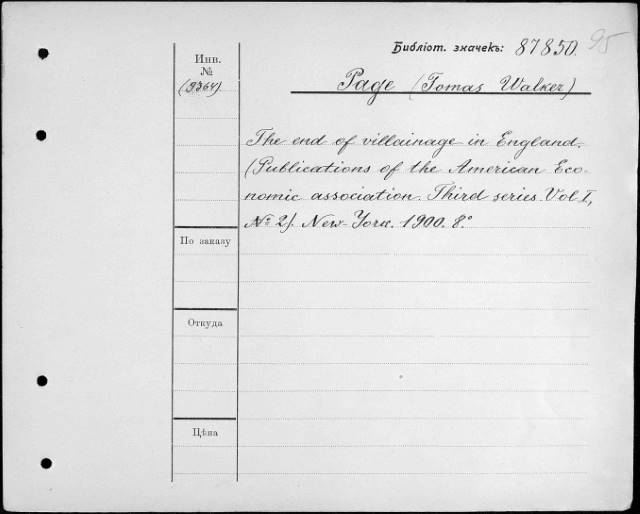 Библіот. значекъ: 87850. 95
Инв.
№
(9364).
Page (Tomas Walker)
The end of villainage in England.
(Publications of the American Eco-
nomic association. Third series. Vol I,
№ 2). New-York. 1900. 8.°
По заказу
Откуда
Цѣна